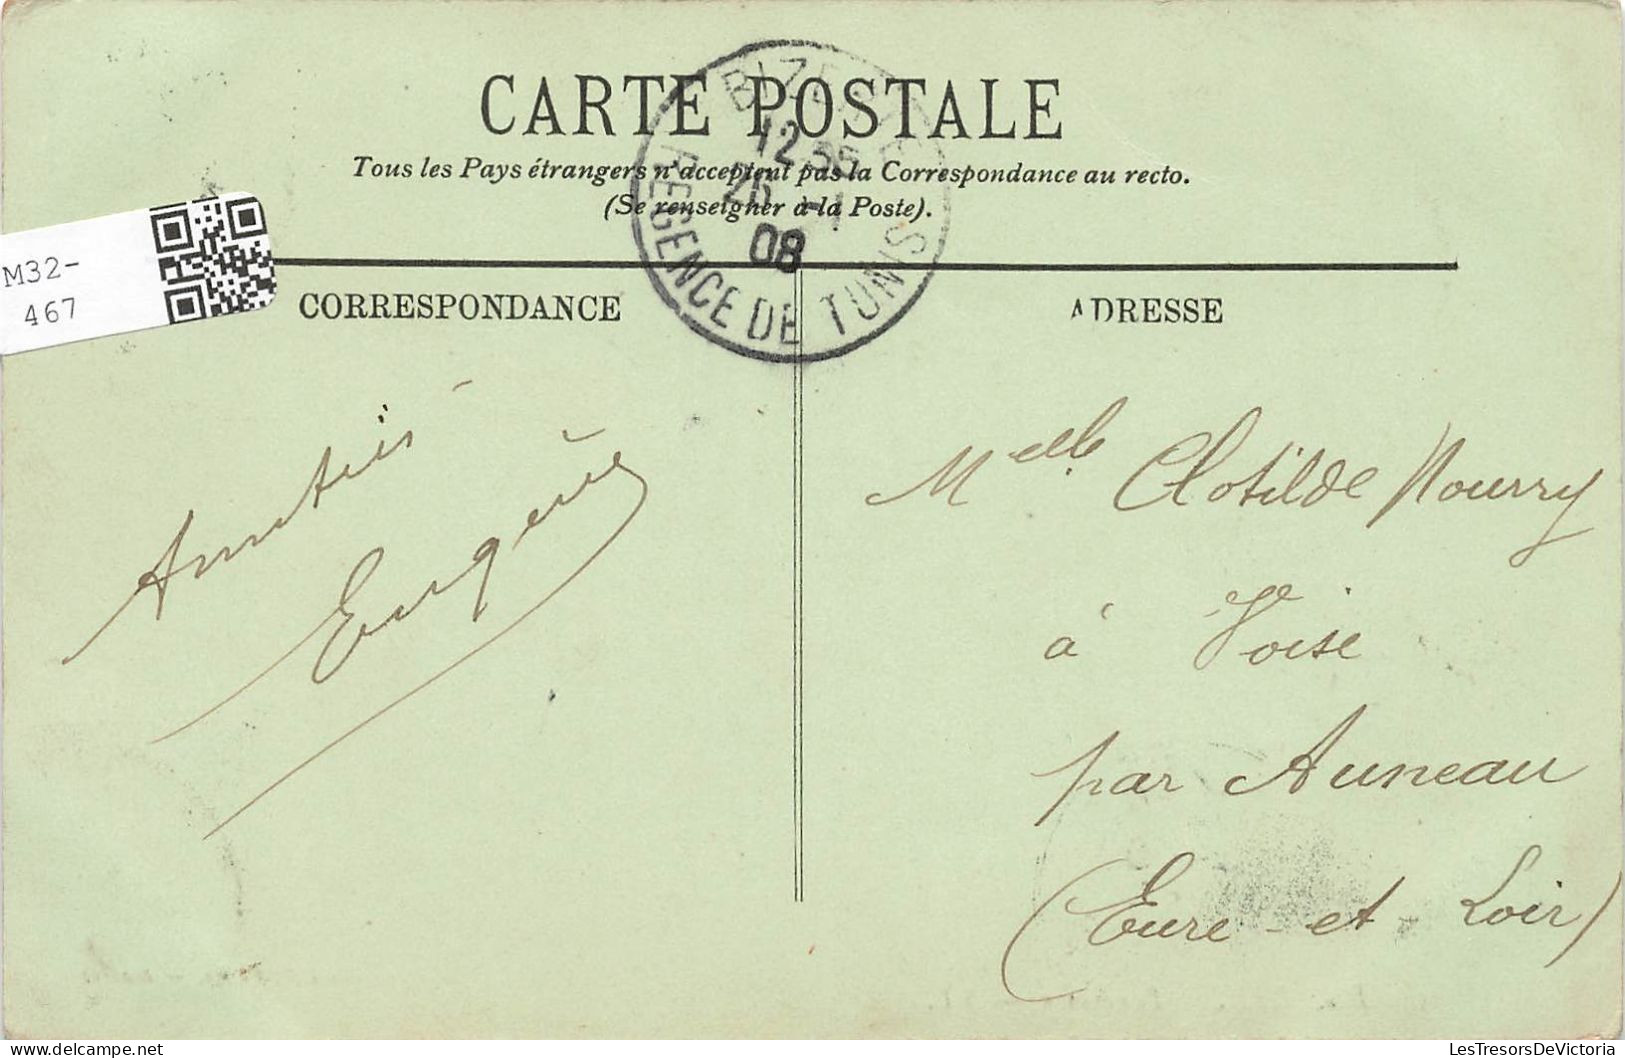 CARTE POSTALE
Tous les Pays étrangers n'acceptent pas la Correspondance au recto.
(Se renseigner à la Poste).
BIZE
12
26 -1
08
REGENCE DE TUNIS
M32-
467
CORRESPONDANCE
ADRESSE
Amitiés
Eugénie
Melle Clotilde Nourry
à Voise
par Auneau
(Eure et Loir)
LesTresorsDeVictoria